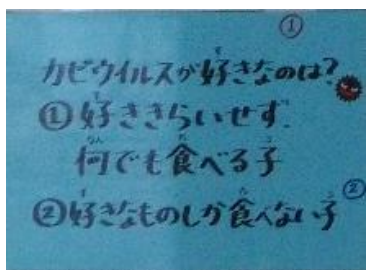 ①
カビウイルスが好きなのは?
①好ききらいせず
何でも食べる子
②好きなものしか食べない子
②